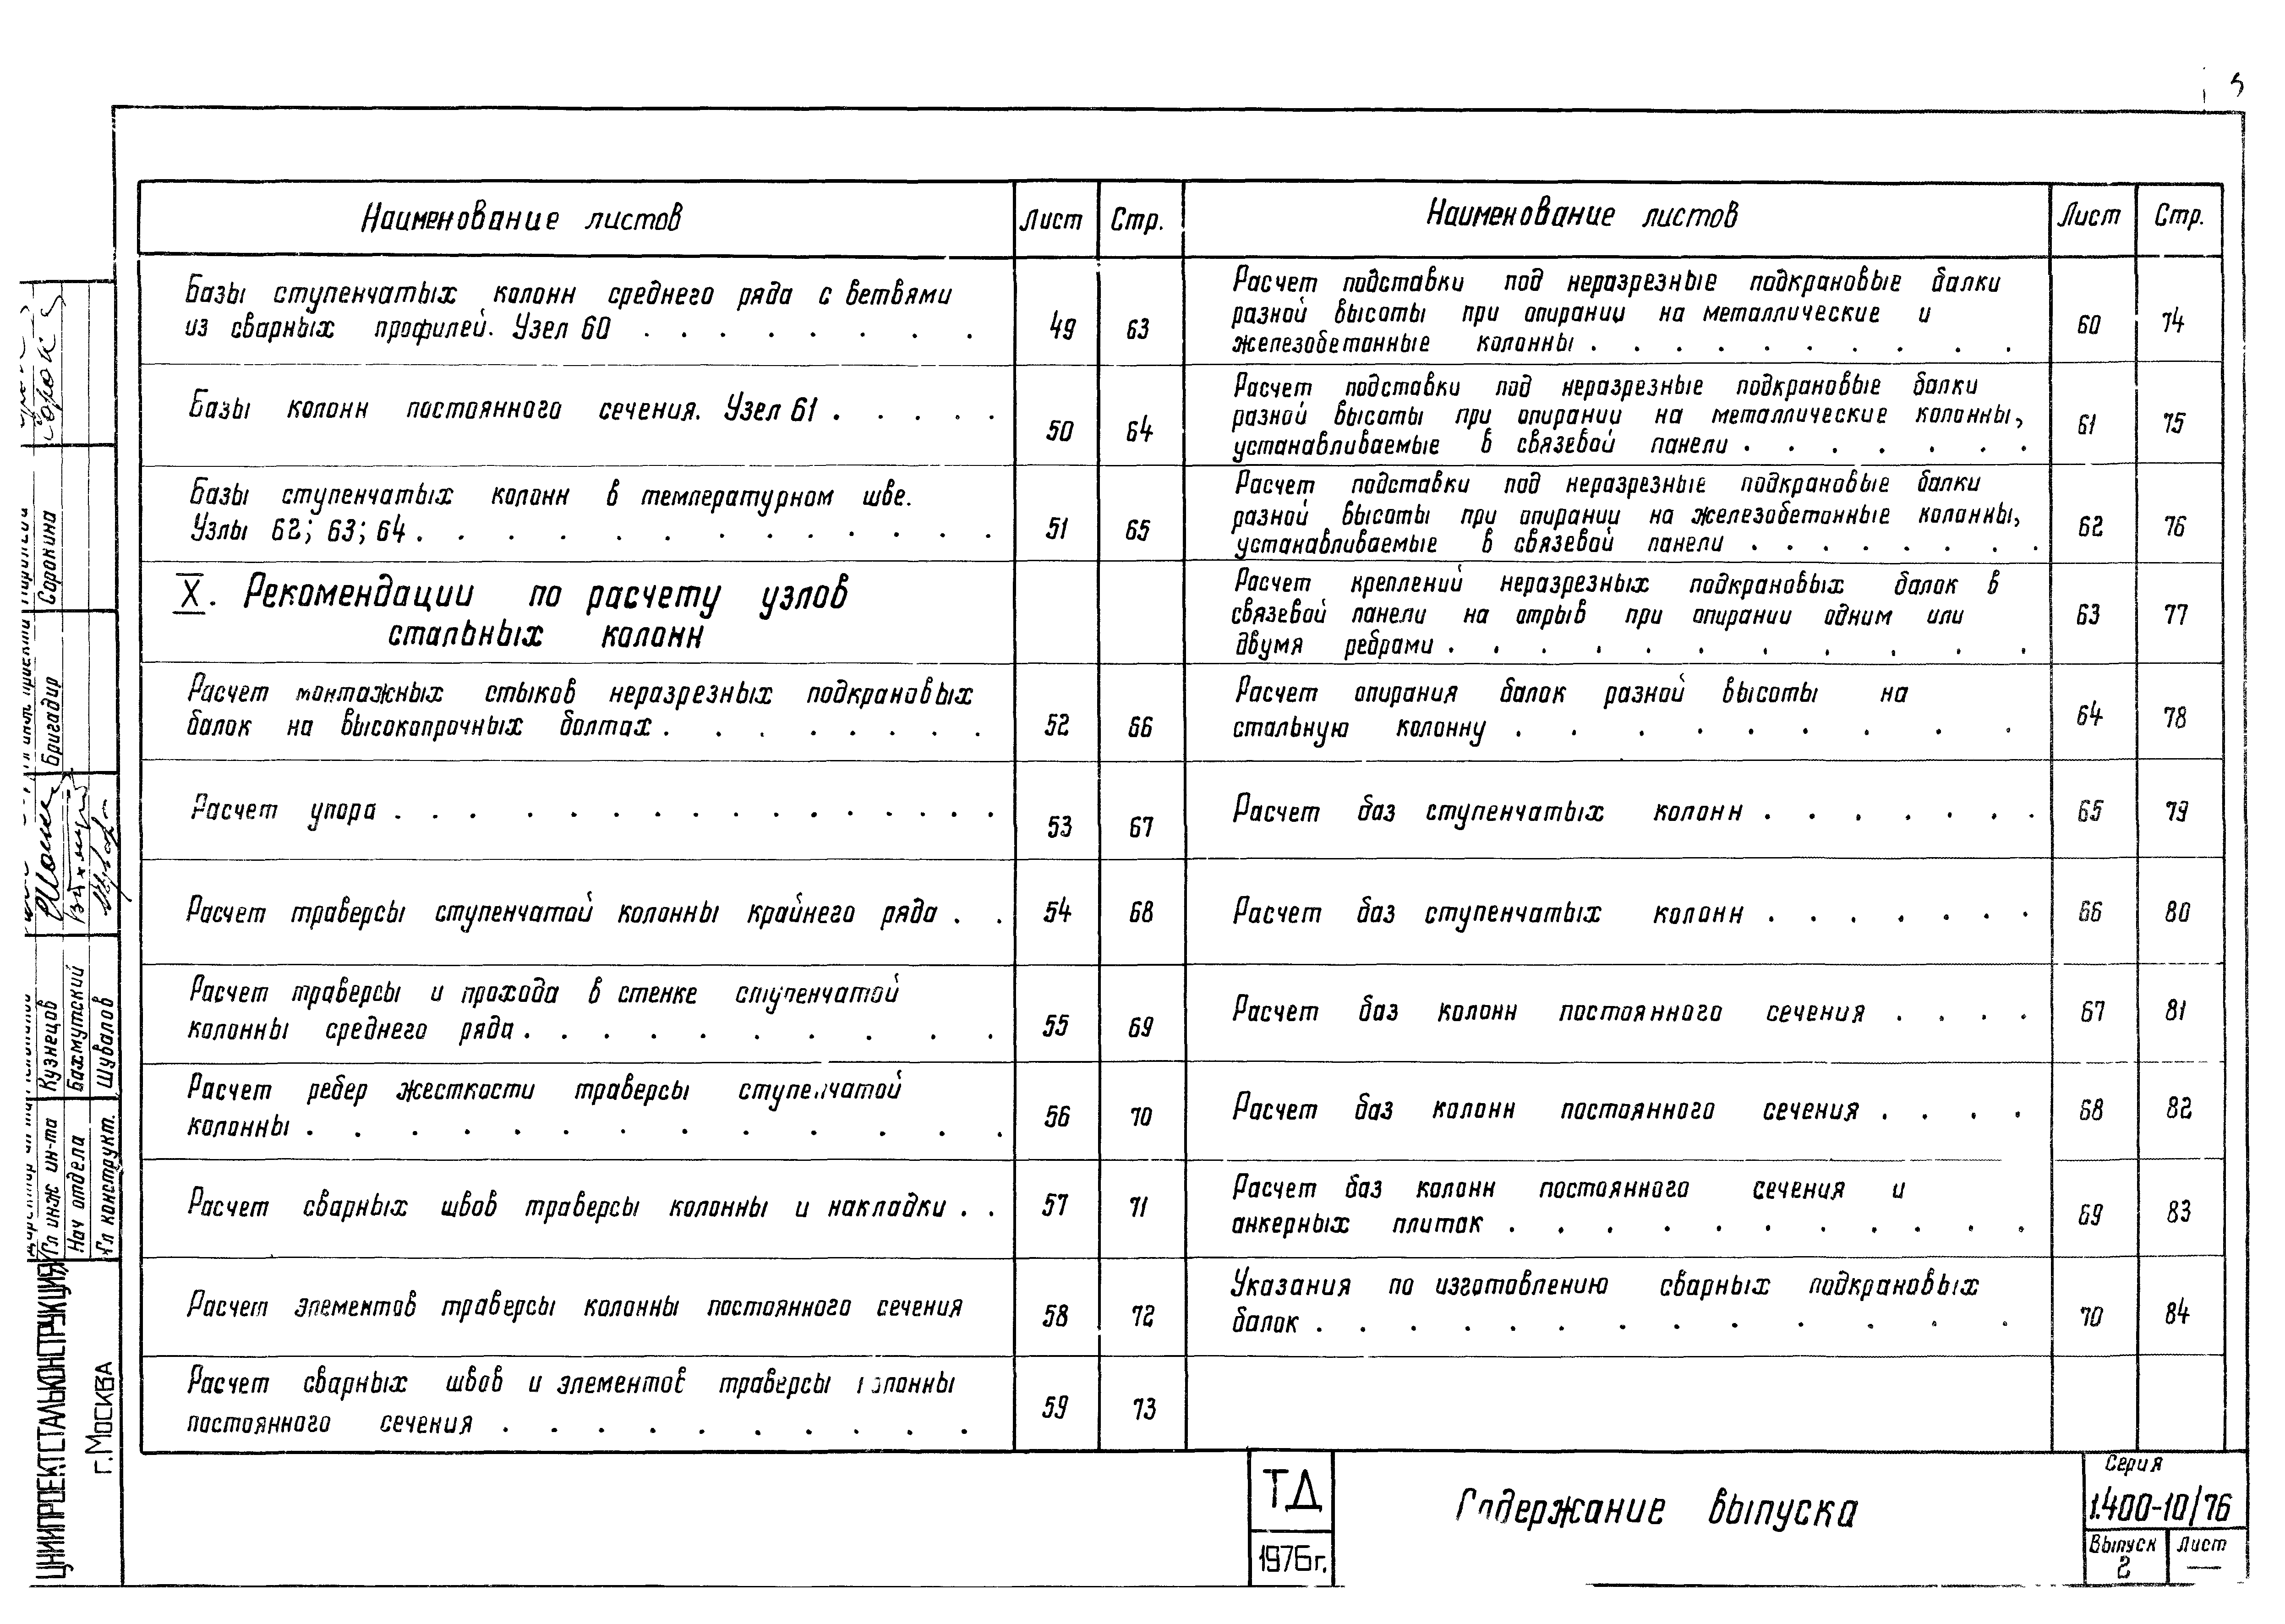 5
Наименование листов
Лист
Стр.
Базы ступенчатых колонн среднего ряда с ветвями
из сварных профилей. Узел 60 . . . . . . . .
49
63
Базы колонн постоянного сечения. Узел 61 . . . . .
50
64
Базы ступенчатых колонн в температурном шве.
Узлы 62; 63; 64 . . . . . . . . . . . .
51
65
X. Рекомендации по расчету узлов
стальных колонн
Расчет монтажных стыков неразрезных подкрановых
балок на высокопрочных болтах . . . . . . . .
52
66
Расчет упора . . . . . . . . . . . . . . .
53
67
Расчет траверсы ступенчатой колонны крайнего ряда . .
54
68
Расчет траверсы и прохода в стенке ступенчатой
колонны среднего ряда . . . . . . . . . .
55
69
Расчет ребер жесткости траверсы ступенчатой
колонны . . . . . . . . . . . . . .
56
70
Расчет сварных швов траверсы колонны и накладки . .
57
71
Расчет элементов траверсы колонны постоянного сечения
58
72
Расчет сварных швов и элементов траверсы колонны
постоянного сечения . . . . . . . . . .
59
73
Наименование листов
Лист
Стр.
Расчет подставки под неразрезные подкрановые балки
разной высоты при опирании на металлические и
железобетонные колонны . . . . . . . . . .
60
74
Расчет подставки под неразрезные подкрановые балки
разной высоты при опирании на металлические колонны,
устанавливаемые в связевой панели . . . . . . .
61
75
Расчет подставки под неразрезные подкрановые балки
разной высоты при опирании на железобетонные колонны,
устанавливаемые в связевой панели . . . . . . . .
62
76
Расчет креплений неразрезных подкрановых балок в
связевой панели на отрыв при опирании одним или
двумя ребрами . . . . . . . . . . .
63
77
Расчет опирания балок разной высоты на
стальную колонну . . . . . . . . .
64
78
Расчет баз ступенчатых колонн . . . . . . .
65
79
Расчет баз ступенчатых колонн . . . . . . .
66
80
Расчет баз колонн постоянного сечения . . . .
67
81
Расчет баз колонн постоянного сечения . . . .
68
82
Расчет баз колонн постоянного сечения и
анкерных плиток . . . . . . . . . . .
69
83
Указания по изготовлению сварных подкрановых
балок . . . . . . . . . . . . .
70
84
ТД
1976г.
Содержание выпуска
Серия
1.400-10/76
Выпуск
2
Лист
—
ЦНИИПРОЕКТСТАЛЬКОНСТРУКЦИЯ
г. Москва
Гл инж ин-та Кузнецов
Нач отдела Бахмутский
Гл конструкт. Шувалов
Бригадир Сорокина